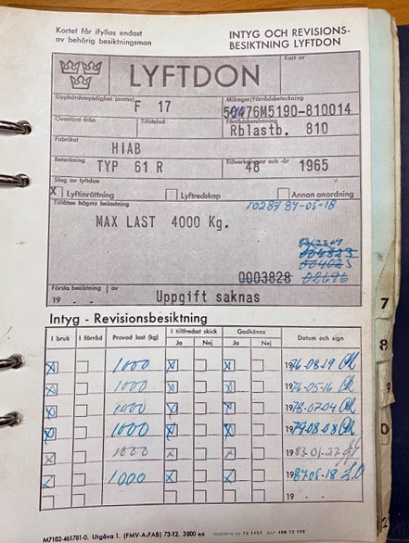 Kortet får ifyllas endast
av behörig besiktningsman
INTYG OCH REVISIONS-
BESIKTNING LYFTDON
Kort nr
LYFTDON
Uppbördsmyndighet
F 17
Förrådsbeteckning
M5190-810014
Överförd från
Tillstånd
Förrådsbenämning
Rblastb. 810
Fabrikat
HIAB
Beteckning
TYP 61 R
Tillverkningsnr och -år
48
1965
Slag av lyftdon
X Lyftinrättning
Lyftredskap
Annan anordning
Tillåten högsta belastning
10287 87-05-18
MAX LAST 4000 Kg.
0003828
Första besiktning
av
19
Uppgift saknas
Intyg - Revisionsbesiktning
I bruk
I förråd
Provad last (kg)
I tillfredsst skick
Ja
Nej
Godkännes
Ja
Nej
Datum och sign
X 1000 X X 1976-08-19
X 1000 X X
X 1000 X X 1978-07-04
X 1000 X X 1979-08-08
X 1000 X X 1983-01-27
1000 X X 1987-05-18
19
M7102-461781-0. Utgåva 1. (FMV-A:FAB) 73-12. 3000 ex
7
8